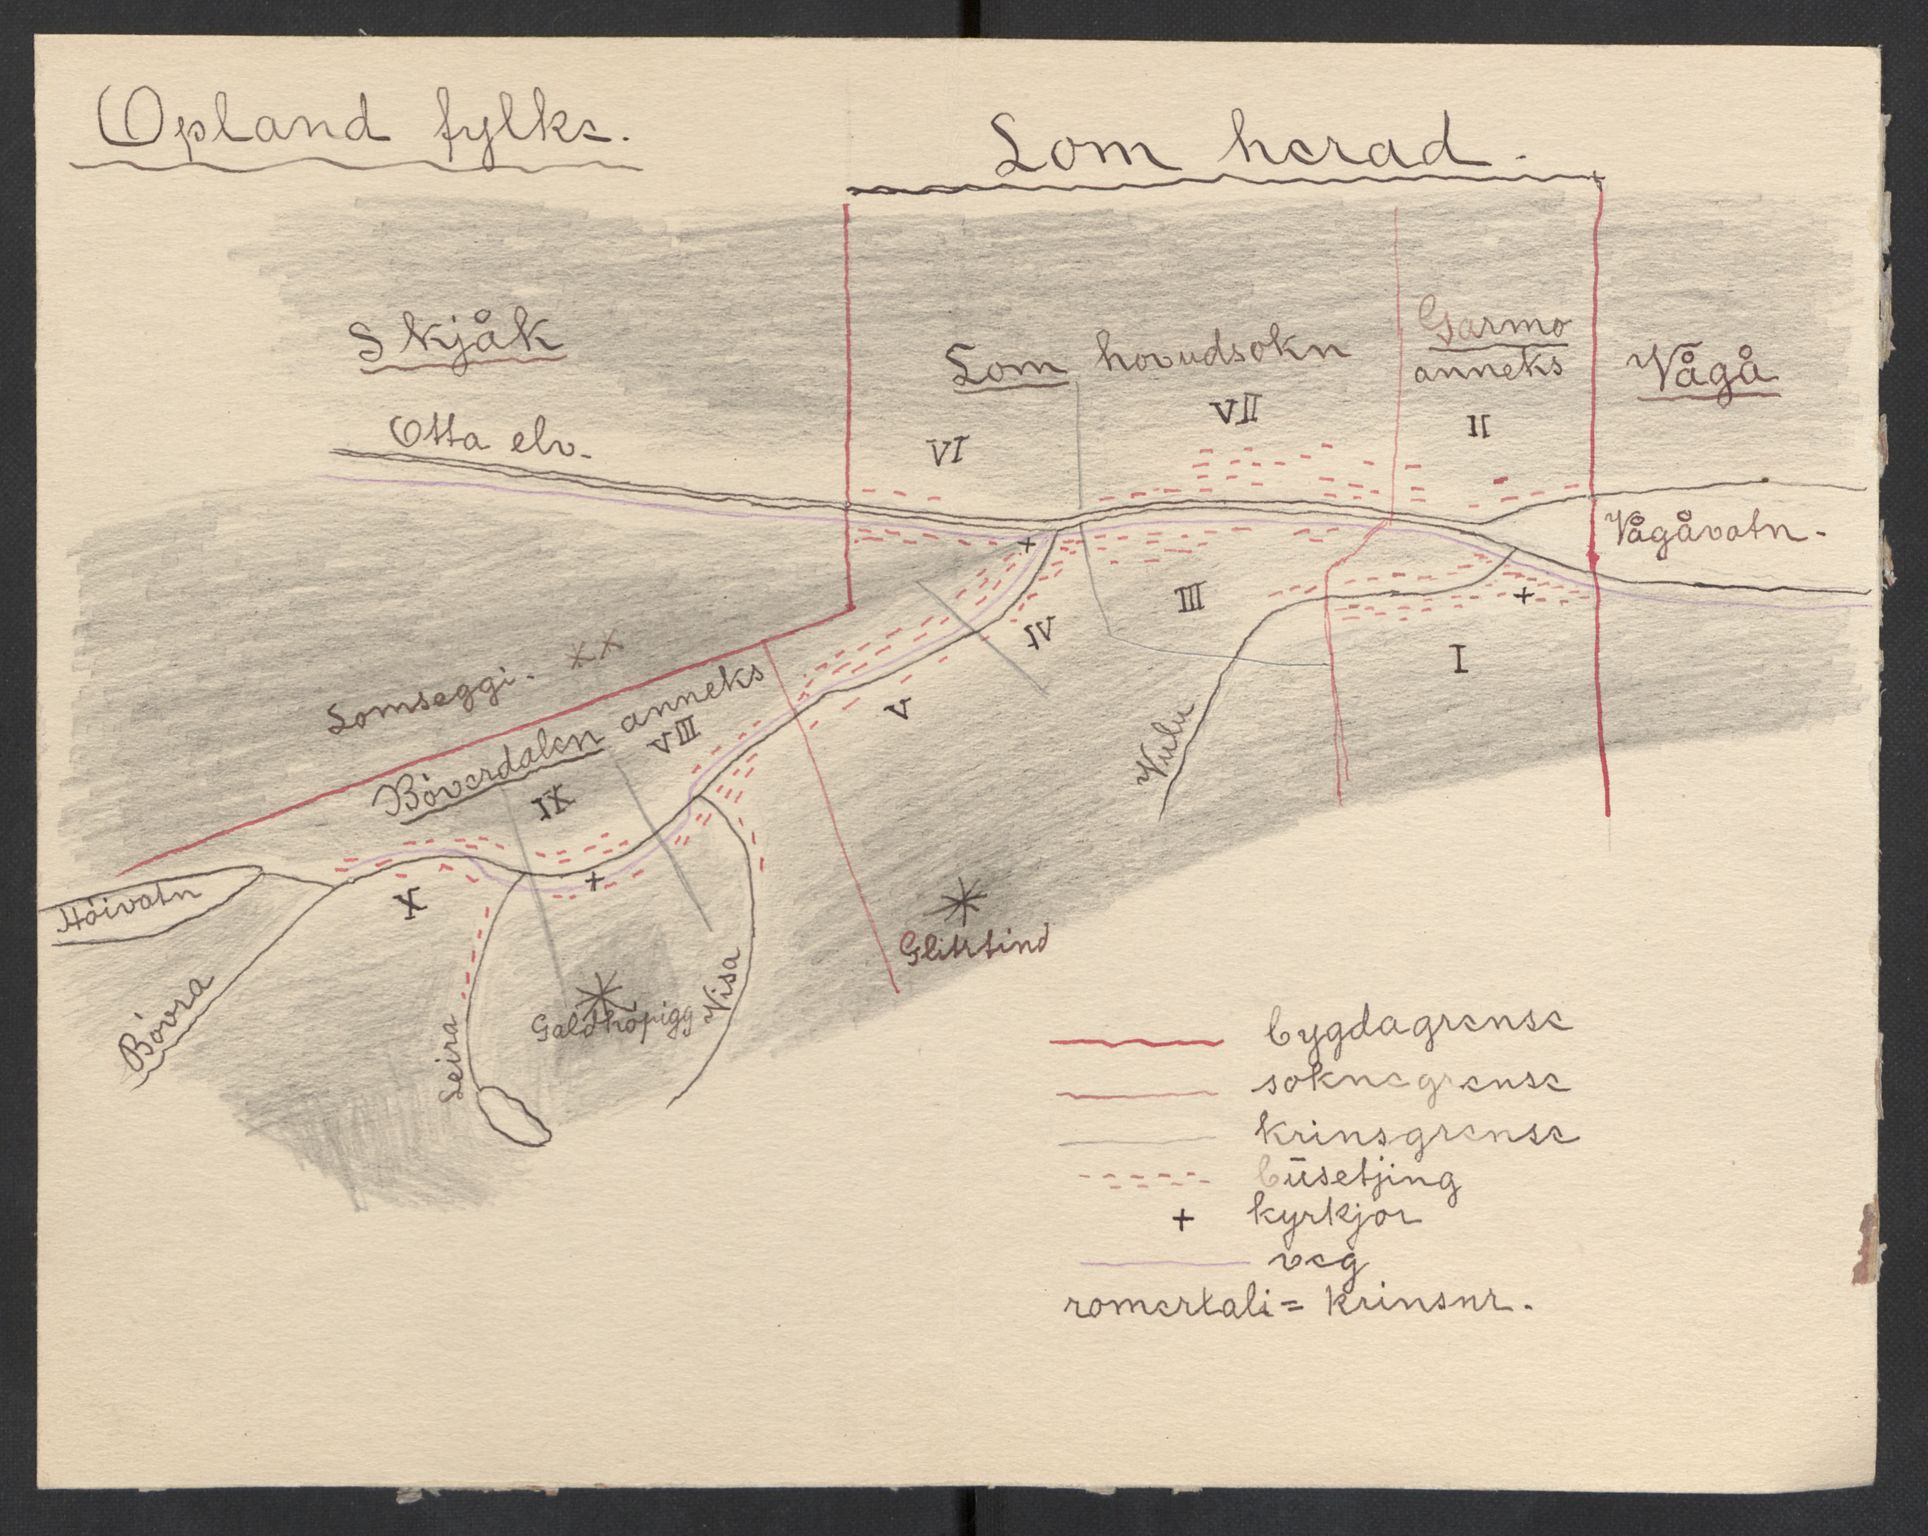 Opland fylke.
Lom herad.
Skjåk
Lom hovudsokn
Garmo
anneks
Vågå
Otta elv.
VI
VII
II
Vågåvatn.
III
IV
I
V
Lomseggi. XX
Bøverdalen anneks
VIII
IX
X
Vulu
Høivatn
Bøvra
Leira
Galdhøpigg
Visa
Glittertind
bygdagrense
soknegrense
krinsgrense
busetjing
+ kyrkjor
veg
romertali = krinsnr.